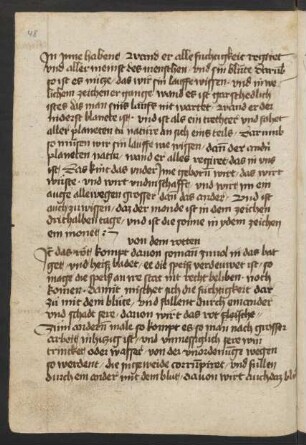 48
In jme habens wand er alle fuchtigkeit regiret
vnd aller meinst des menschen vnd sin blüte Darüb
so ist es nütze das wir sin lauffe wissen vnd in we
lichem zeichen er gange wand es ist gar schedlich
ist es das man sins lauffs nit wartet wand er der
niderst planete ist vnd ist als ein trechter vnd sihet
aller planeten in nature an sich eins teils Darumb
so müsen wir sin lauffe wissen dan der andn
planeten natu wand er alles regiret das in vns
ist Das kint das vnder jme geborn wirt das wirt
wüste vnd wirt vndinschafft vnd wirt ym ein
auge alle wegen grosser dan das ander Vnd ist
auch zu wissen daz der monde ist in dem zeichen
drithalben tage vnd ist die sonne in ydem zeichen
ein monet
von dem roten
It das rot kompt dauon so man zu vol in das bat
get vnd heiß badet ee die spiß verdeuwet ist so
mage die spiß an jre stat nit recht beliben noch
komen Damit mischet sich die fuchtigkeit dar
zu mit dem blüte vnd fullent durch einander
vnd schadt sere dauon wirt das rot fleische
Zum andern male so kompt es so man nach grosser
arbeit inhitzig ist vnd vnmessiglich sere win
trincket oder wasser von der vnordenüge wegen
so werdent die ingeweide corrüpiret vnd füllen
durch ein ander mit dem blut dauon wirt auch daz blü